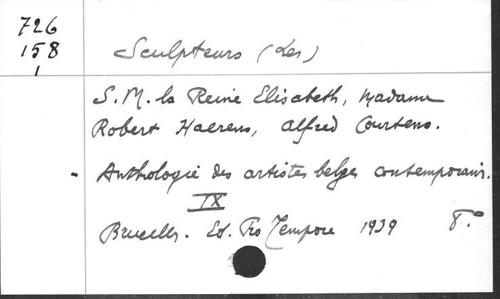 726
158
1
Sculpteurs (Les)
S. M. la Reine Elisabeth, Madame
Robert Haerens, Alfred Courtens.
- Anthologie des artistes belges contemporains.
IX
Bruxelles. Ed. Pro Tempore 1939 8°